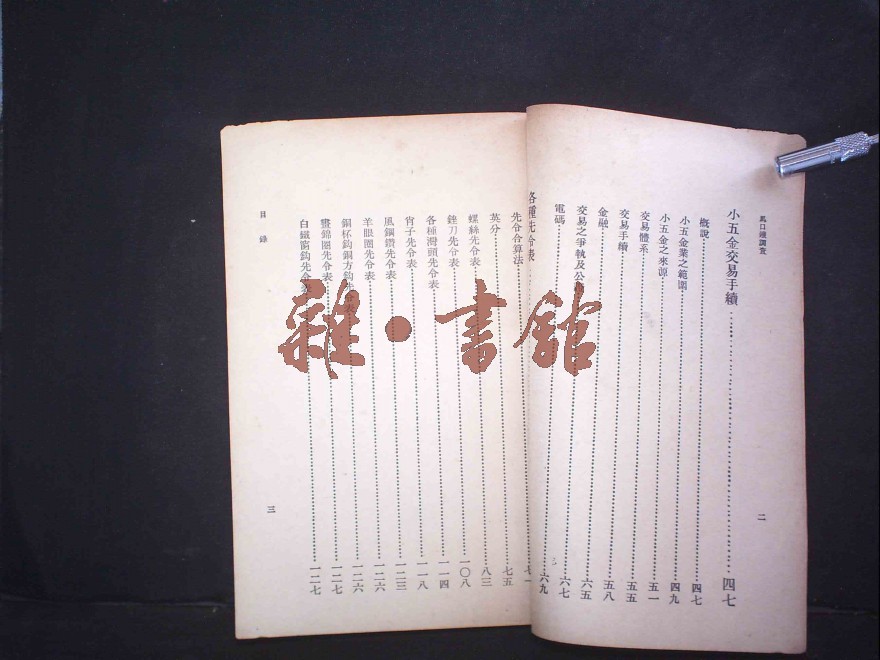 小五金交易手續 四七
概說 四七
小五金業之範圍 四九
小五金之來源 五一
交易體系 五五
交易手續 五八
金融 六五
交易之爭執及公 六七
電碼 六九
各種先令表 七一
先令合算法 七五
英分 八三
螺絲先令表 一〇八
銼刀先令表 一一四
各種灣頭先令表 一一八
宵子先令表 一二三
風鋼鑽先令表 一二六
羊眼圈先令表 一二六
銅杯鈎銅方鈎先令表 一二七
白鐵窗鈎先令表 一二七
目錄
二
三
雜·書館